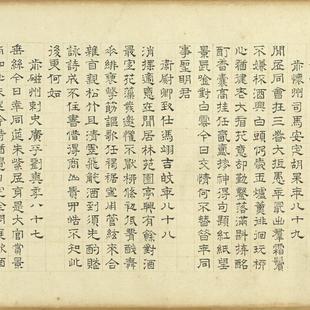 前懷州司馬安定胡杲年八十九
閒居同會在三春大抵愚年最出羣霜鬢
不嫌杯酒興白頭仍愛玉爐薰徘徊玩柳
心猶健老大看花意却勤鑿落滿斟酩
酊香囊高挂任氤氳搜神得句題紅紙望
景長吟對白雲今日交情何不替齊年同
事聖明君
衛尉卿致仕馮翊吉皎年八十八
適意在閒居林苑園亭興有餘對酒
最宜花藻發邀歡不厭柳條初低腰醉舞
垂緋袖擊筑謳歌任褐裾寧用管絃來合
雜自親松竹且清虛飛觥酒到須先酌賦
詠詩成不住書借問商山賢四皓不知此
後更何如
前磁州刺史廣平劉年八十七
垂絲今日幸同筵朱紫居身是大官賞景